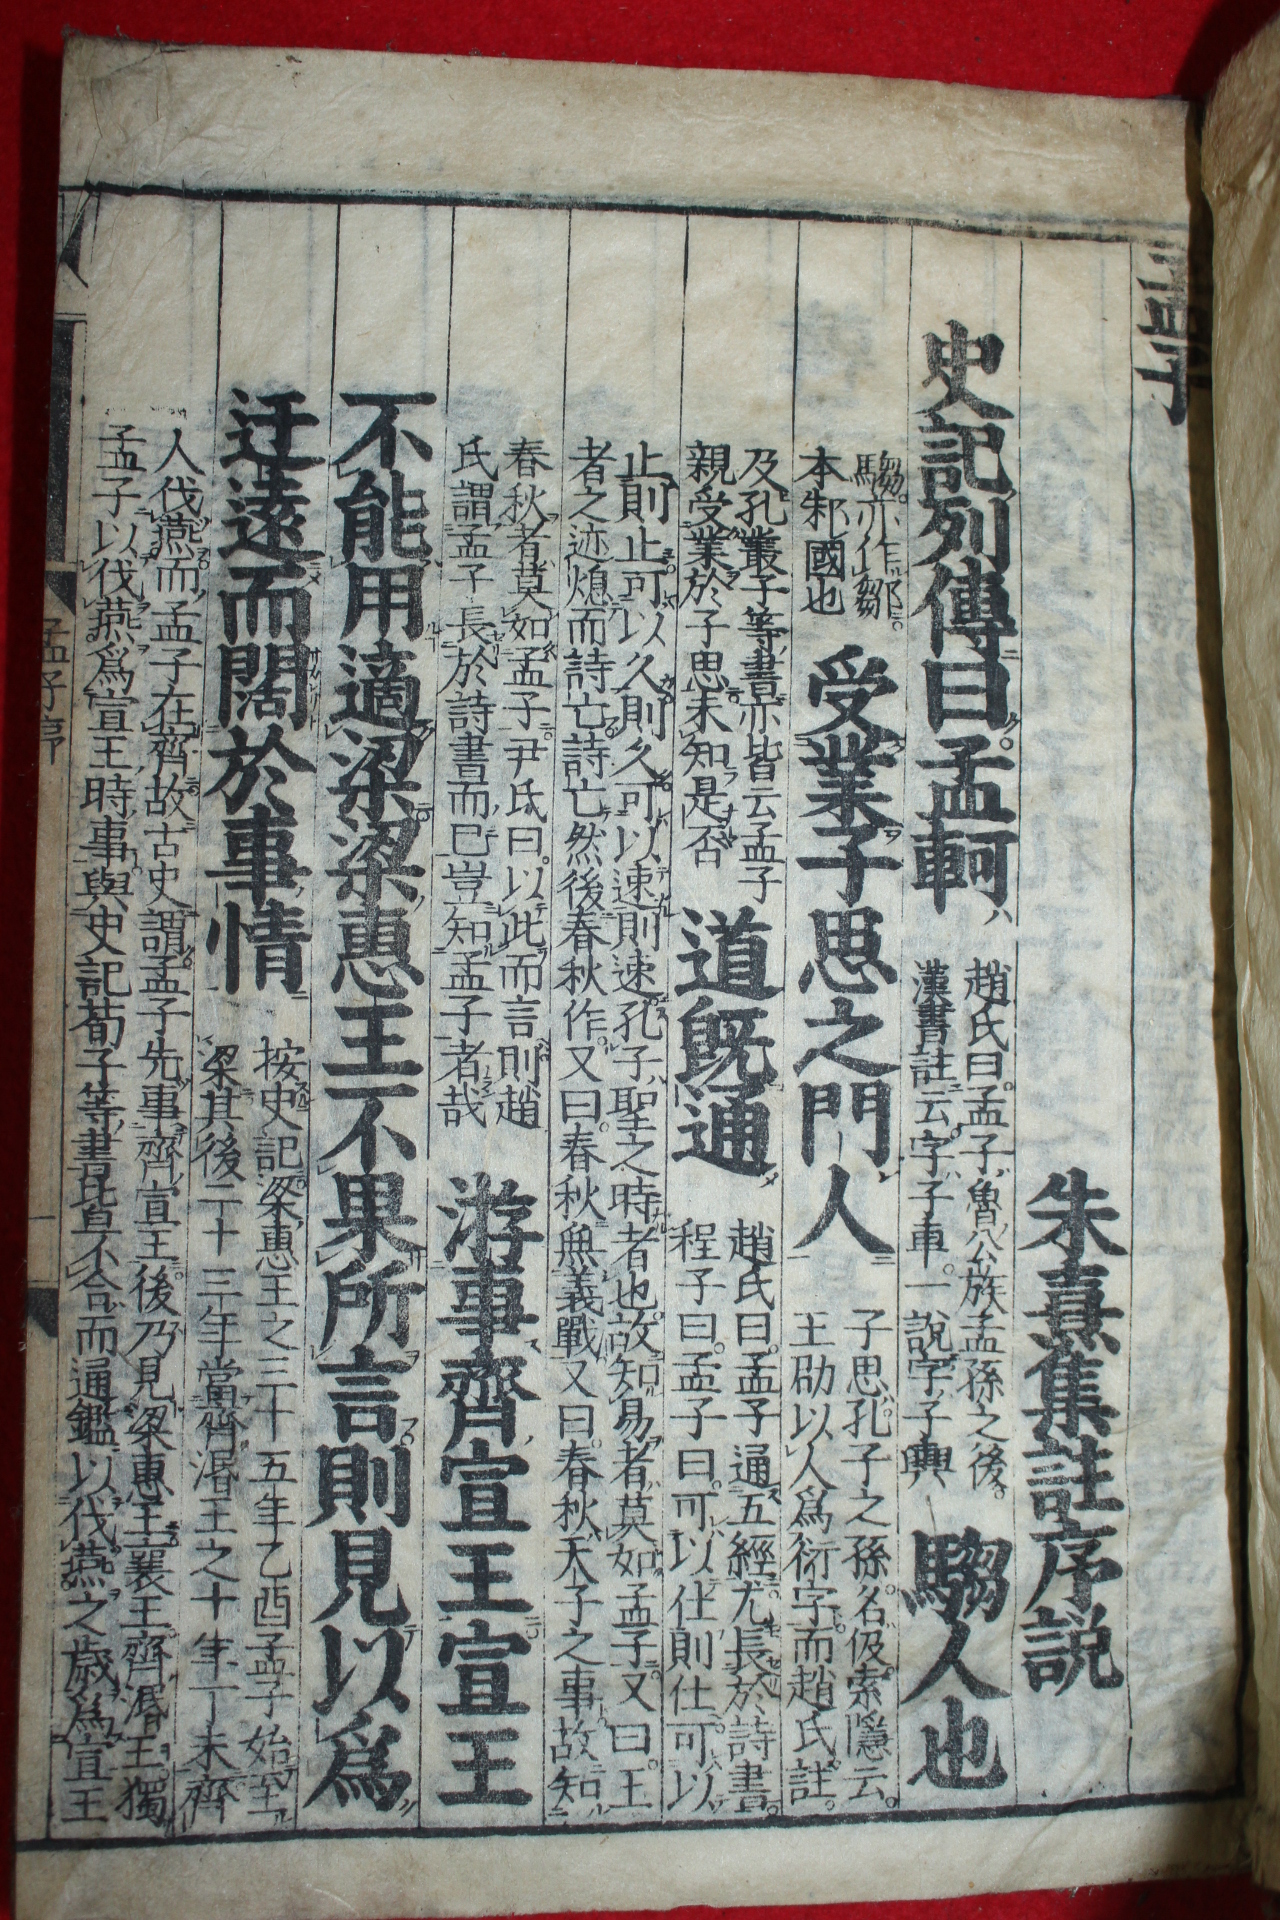 孟子
朱熹集註序説
史記列傳曰孟軻
趙氏曰孟子魯公族孟孫之後
漢書註云字子車一説字子輿
騶人也
騶亦作鄒
本邾國也
受業子思之門人
子思孔子之孫名伋索隱云
王劭以人爲衍字而趙氏註
及孔叢子等書亦皆云孟子
親受業於子思未知是否
道既通
趙氏曰孟子通五經尤長於詩書
程子曰孟子曰可以仕則仕可以
止則止可以久則久可以速則速孔子聖之時者也故知易者莫如孟子又曰王
者之迹熄而詩亡詩亡然後春秋作又曰春秋無義戰又曰春秋天子之事故知
春秋者莫如孟子尹氏曰以此而言則趙
氏謂孟子長於詩書而已豈知孟子者哉
游事齊宣王宣王
不能用適梁梁惠王不果所言則見以爲
迂遠而闊於事情
按史記梁惠王之三十五年乙酉孟子始至
梁其後二十三年當齊湣王之十年丁未齊
人伐燕而孟子在齊故古史謂孟子先事齊宣王後乃見梁惠王襄王齊湣王獨
孟子以伐燕爲宣王時事與史記荀子等書皆不合而通鑑以伐燕之歲爲宣王
孟子序
一